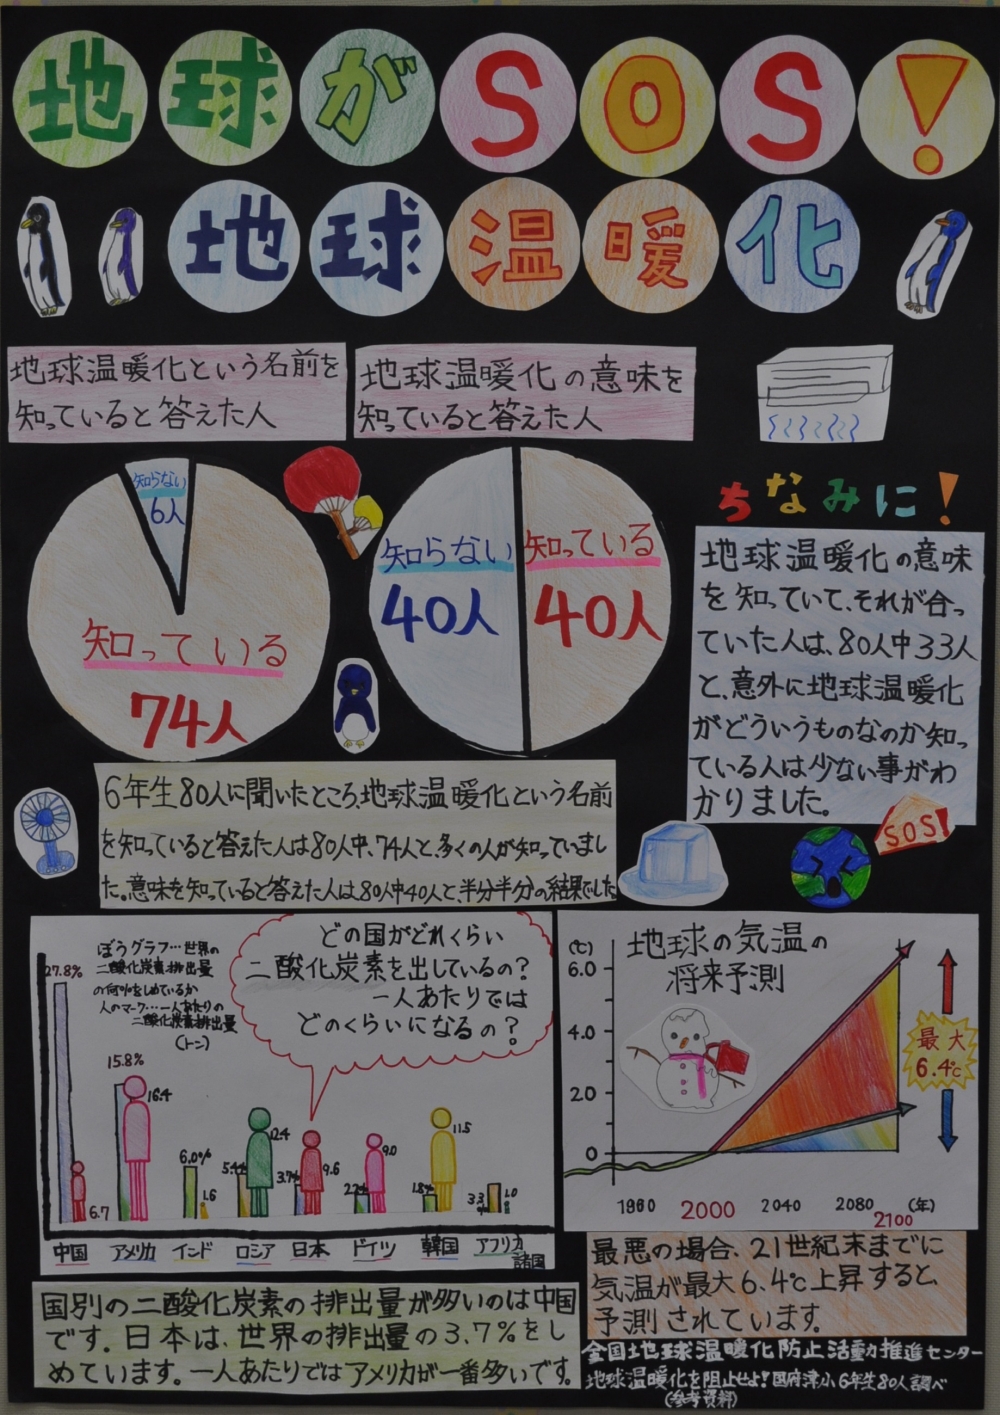 地球がSOS!
地球温暖化
地球温暖化という名前を
知っていると答えた人
地球温暖化の意味を
知っていると答えた人
知らない
6人
知っている
74人
知らない
40人
知っている
40人
ちなみに!
地球温暖化の意味
を知っていて、それが合っ
ていた人は、80人中33人
と、意外に地球温暖化
がどういうものなのか知っ
ている人は少ない事がわ
かりました。
6年生80人に聞いたところ、地球温暖化という名前
を知っていると答えた人は80人中、74人と、多くの人が知っていまし
た。意味を知っていると答えた人は80人中40人と、半分半分の結果でした
SOS!
ぼうグラフ…世界の
二酸化炭素排出量
の何%をしめているか
人のマーク…一人あたりの
二酸化炭素排出量
(トン)
どの国がどれくらい
二酸化炭素を出しているの?
一人あたりでは
どのくらいになるの?
27.8%
6.7
15.8%
16.4
6.0%
1.6
5.4%
12.4
3.7%
9.6
2.2%
9.0
1.8%
11.5
3.3%
1.0
中国
アメリカ
インド
ロシア
日本
ドイツ
韓国
アフリカ
諸国
地球の気温の
将来予測
(℃)
6.0
4.0
2.0
0
1960
2000
2040
2080
2100
(年)
最大
6.4℃
国別の二酸化炭素の排出量が多いのは中国
です。日本は、世界の排出量の3.7%をし
めています。一人あたりではアメリカが一番多いです。
最悪の場合、21世紀末までに
気温が最大6.4℃上昇すると、
予測されています。
全国地球温暖化防止活動推進センター
地球温暖化を阻止せよ!国府津小6年生80人調べ
(参考資料)